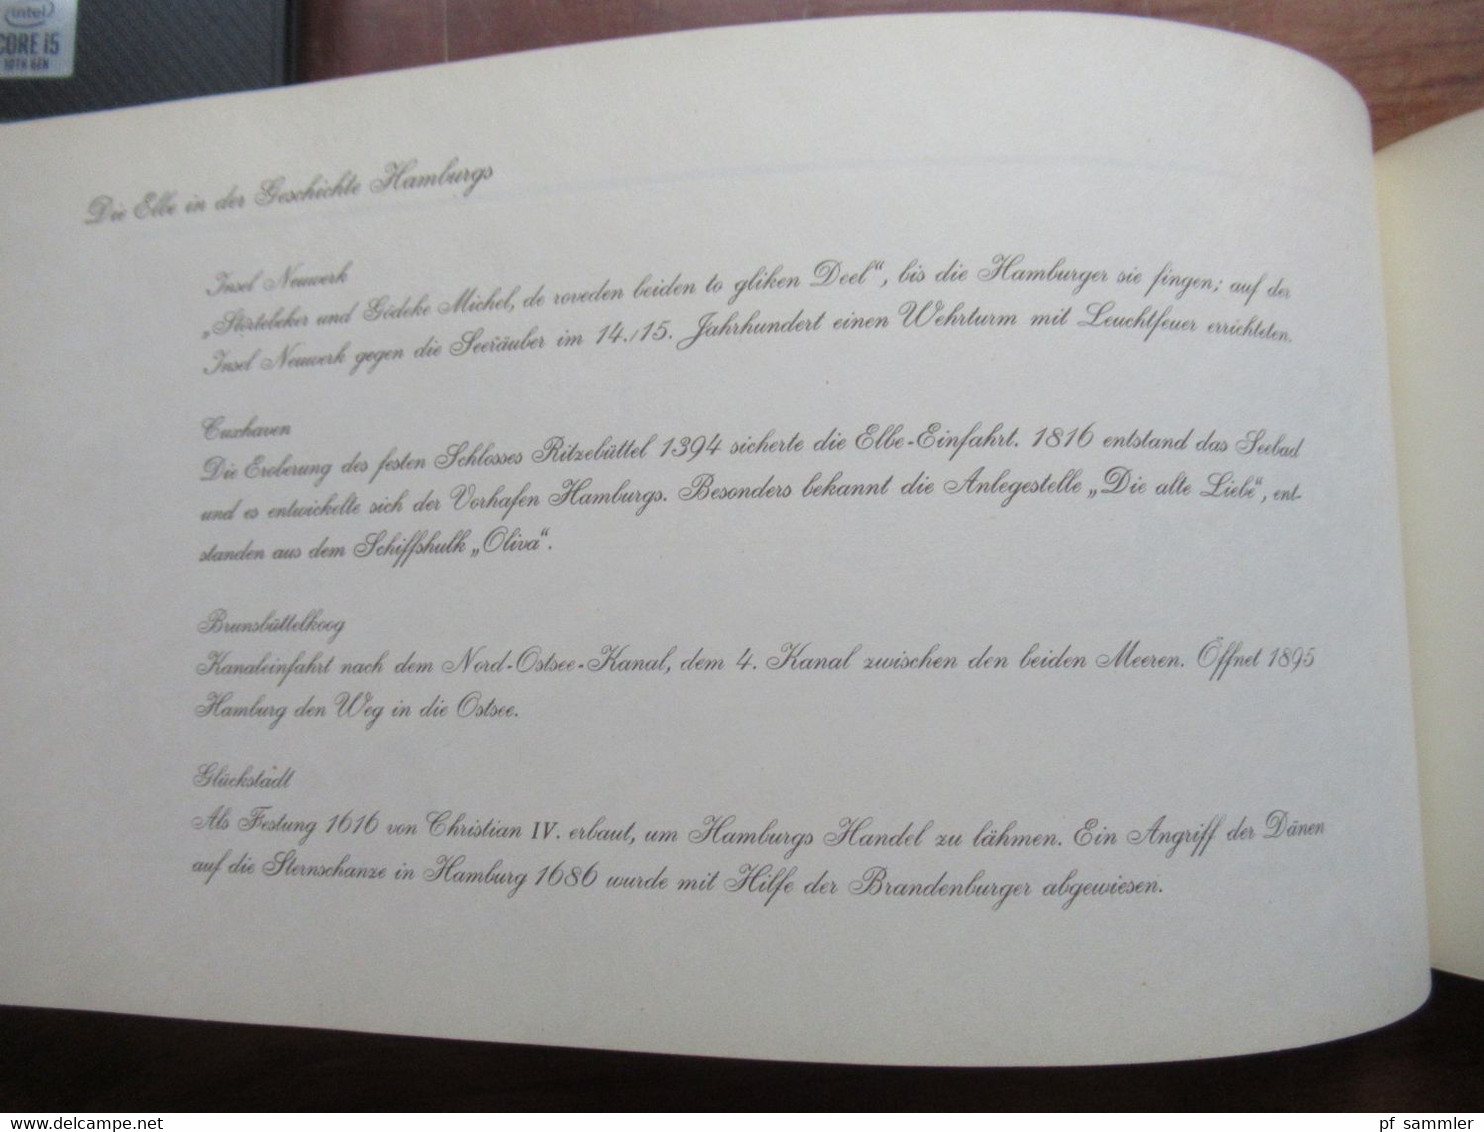 intel
CORE i5
10TH GEN
Die Elbe in der Geschichte Hamburgs
Insel Neuwerk
„Störtebeker und Gödeke Michel, de roveden beiden to gliken Deel“, bis die Hamburger sie fingen; auf der
Insel Neuwerk gegen die Seeräuber im 14./15. Jahrhundert einen Wehrturm mit Leuchtfeuer errichteten.
Cuxhaven
Die Eroberung des festen Schlosses Ritzebüttel 1394 sicherte die Elbe-Einfahrt. 1816 entstand das Seebad
und es entwickelte sich der Vorhafen Hamburgs. Besonders bekannt die Anlegestelle „Die alte Liebe“, ent-
standen aus dem Schiffshulk „Oliva“.
Brunsbüttelkoog
Kanaleinfahrt nach dem Nord-Ostsee-Kanal, dem 4. Kanal zwischen den beiden Meeren. Öffnet 1895
Hamburg den Weg in die Ostsee.
Glückstadt
Als Festung 1616 von Christian IV. erbaut, um Hamburgs Handel zu lähmen. Ein Angriff der Dänen
auf die Sternschanze in Hamburg 1686 wurde mit Hilfe der Brandenburger abgewiesen.
www.delcampe.net
pf_sammler